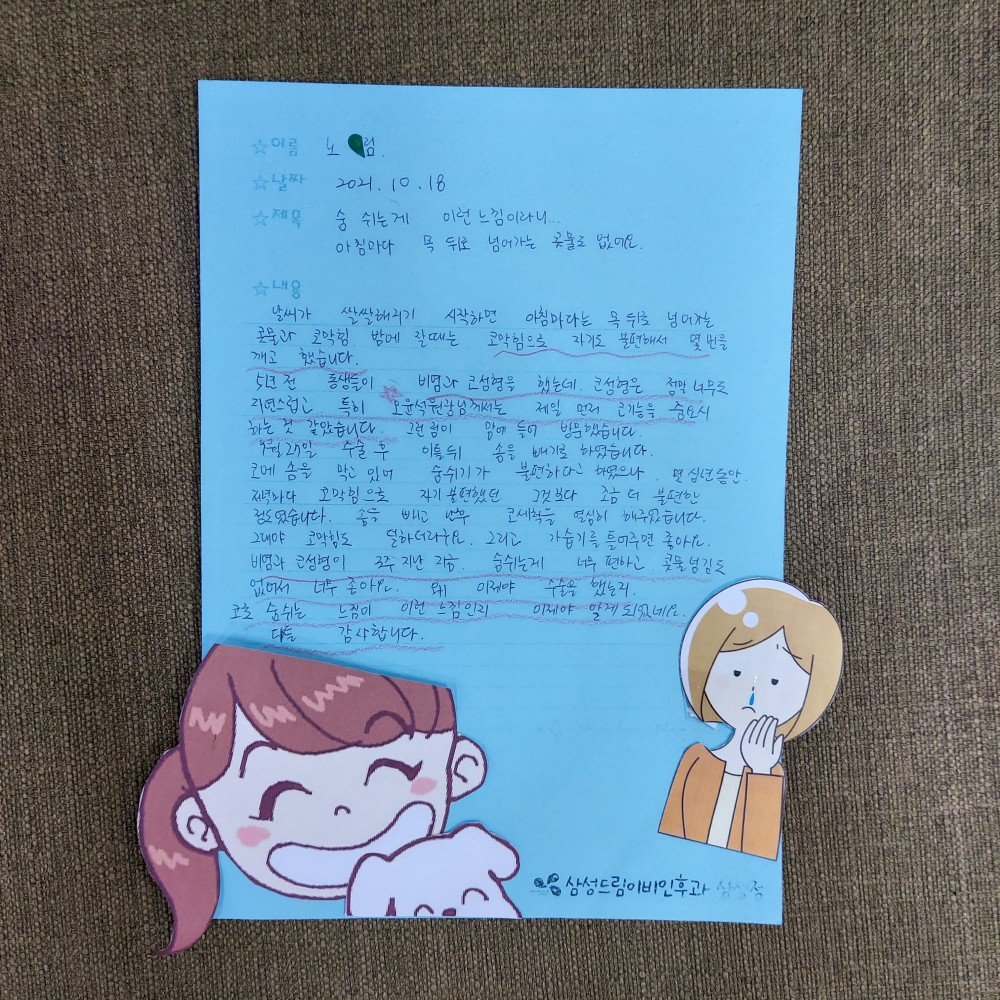 ☆이름 노 림.
☆날짜 2021. 10. 18
☆제목 숨 쉬는게 이런 느낌이라니...
아침마다 목 뒤로 넘어가는 콧물도 없어요.
☆내용
날씨가 쌀쌀해지기 시작하면 아침마다는 목 뒤로 넘어가는
콧물과 코막힘 밤에 잘때는 코막힘으로 자기도 불편해서 몇 번을
깨고 했습니다.
5년 전 동생들이 비염과 코성형을 했는데. 코성형은 정말 너무도
자연스럽고. 특히 오윤석원장님께서는 제일 먼저 코기능을 중요시
하는 것 같았습니다. 그런 점이 맘에 들어 방문했습니다.
9월 27일 수술 후 이틀뒤 솜을 빼기로 하였습니다.
코에 솜을 막고 있어 숨쉬기가 불편하다고 하였으나. 몇 십년동안.
저녁마다 코막힘으로 자기 불편했던 그것보다 조금 더 불편한
정도였습니다. 솜을 빼고 난후 코세척을 열심히 해주었습니다.
그래야 코막힘도 덜하더라구요. 그리고 가습기를 틀어주면 좋아요.
비염과 코성형이 3주 지난 지금. 숨쉬는게 너무 편하고 콧물 넘김도
없어서 너무 좋아요. 왜 이제야 수술을 했는지.
코로 숨쉬는 느낌이 이런 느낌인지 이제야 알게 되었네요.
다들 감사합니다.
삼성드림이비인후과